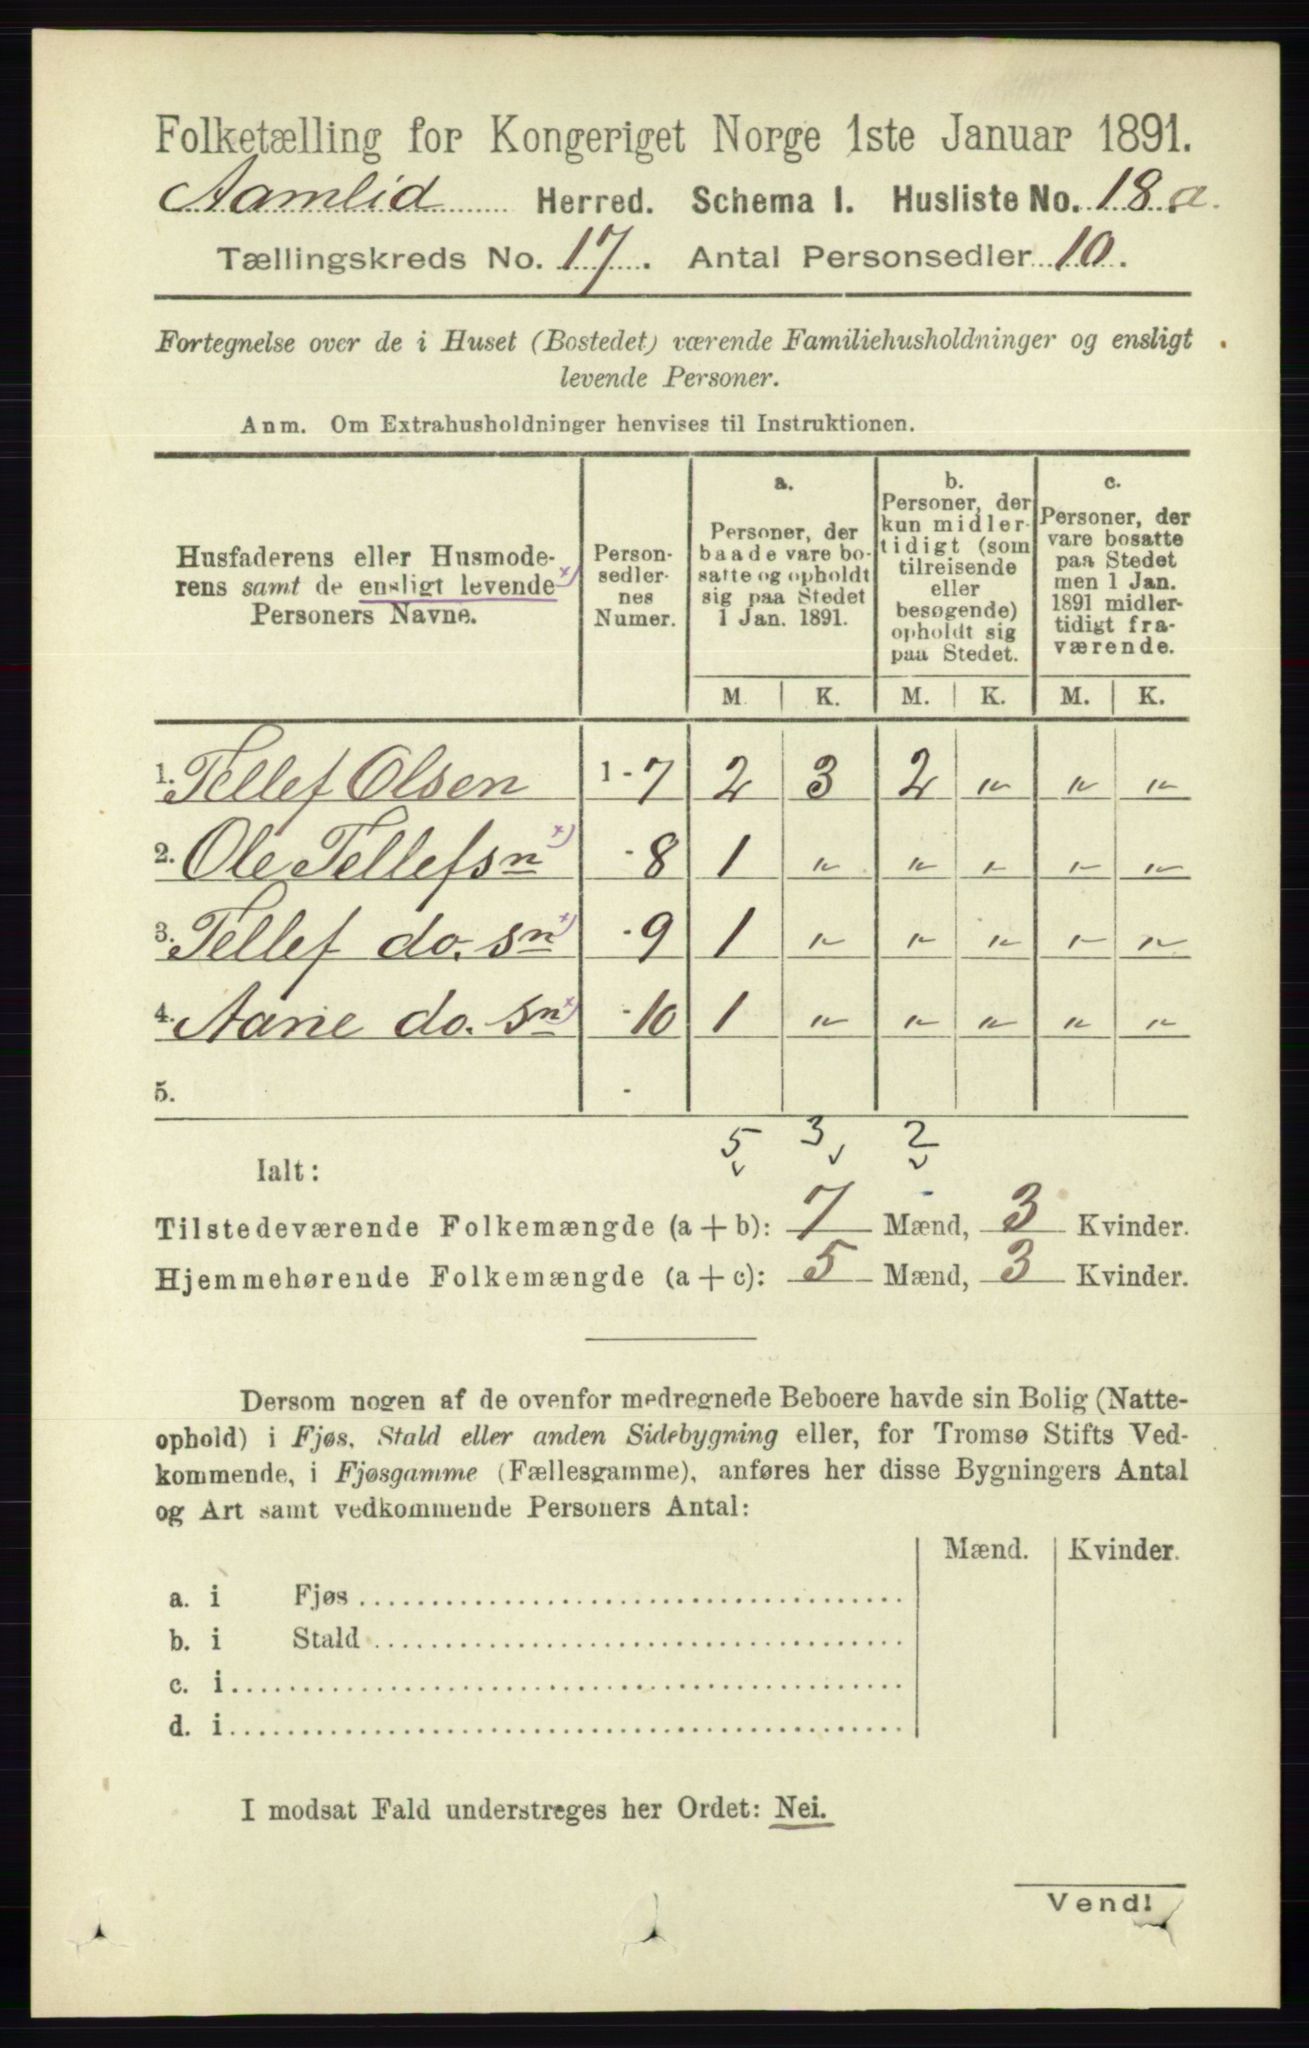 Folketælling for Kongeriget Norge 1ste Januar 1891.
Aamlid Herred. Schema I. Husliste No. 18 a.
Tællingskreds No. 17. Antal Personsedler 10.
Fortegnelse over de i Huset (Bostedet) værende Familiehusholdninger og ensligt
levende Personer.
Anm. Om Extrahusholdninger henvises til Instruktionen.
Husfaderens eller Husmode-
rens samt de ensligt levende x)
Personers Navne.
Person-
sedler-
nes
Numer.
a.
Personer, der
baade vare bo-
satte og opholdt
sig paa Stedet
1 Jan. 1891.
b.
Personer, der
kun midler-
tidigt (som
tilreisende
eller
besøgende)
opholdt sig
paa Stedet.
c.
Personer, der
vare bosatte
paa Stedet
men 1 Jan.
1891 midler-
tidigt fra-
værende.
M. K. M. K. M. K.
1. Tellef Olsen 1-7 2 3 2 " " "
2. Ole Tellefsn x) -8 1 " " " " "
3. Tellef do. sn x) -9 1 " " " " "
4. Aane do. sn x) -10 1 " " " " "
5. -
5 3 2
Ialt:
Tilstedeværende Folkemængde (a + b): 7 Mænd, 3 Kvinder.
Hjemmehørende Folkemængde (a + c): 5 Mænd, 3 Kvinder.
Dersom nogen af de ovenfor medregnede Beboere havde sin Bolig (Natte-
ophold) i Fjøs, Stald eller anden Sidebygning eller, for Tromsø Stifts Ved-
kommende, i Fjøsgamme (Fællesgamme), anføres her disse Bygningers Antal
og Art samt vedkommende Personers Antal:
Mænd. Kvinder.
a. i Fjøs
b. i Stald
c. i
d. i
I modsat Fald understreges her Ordet: Nei.
Vend!